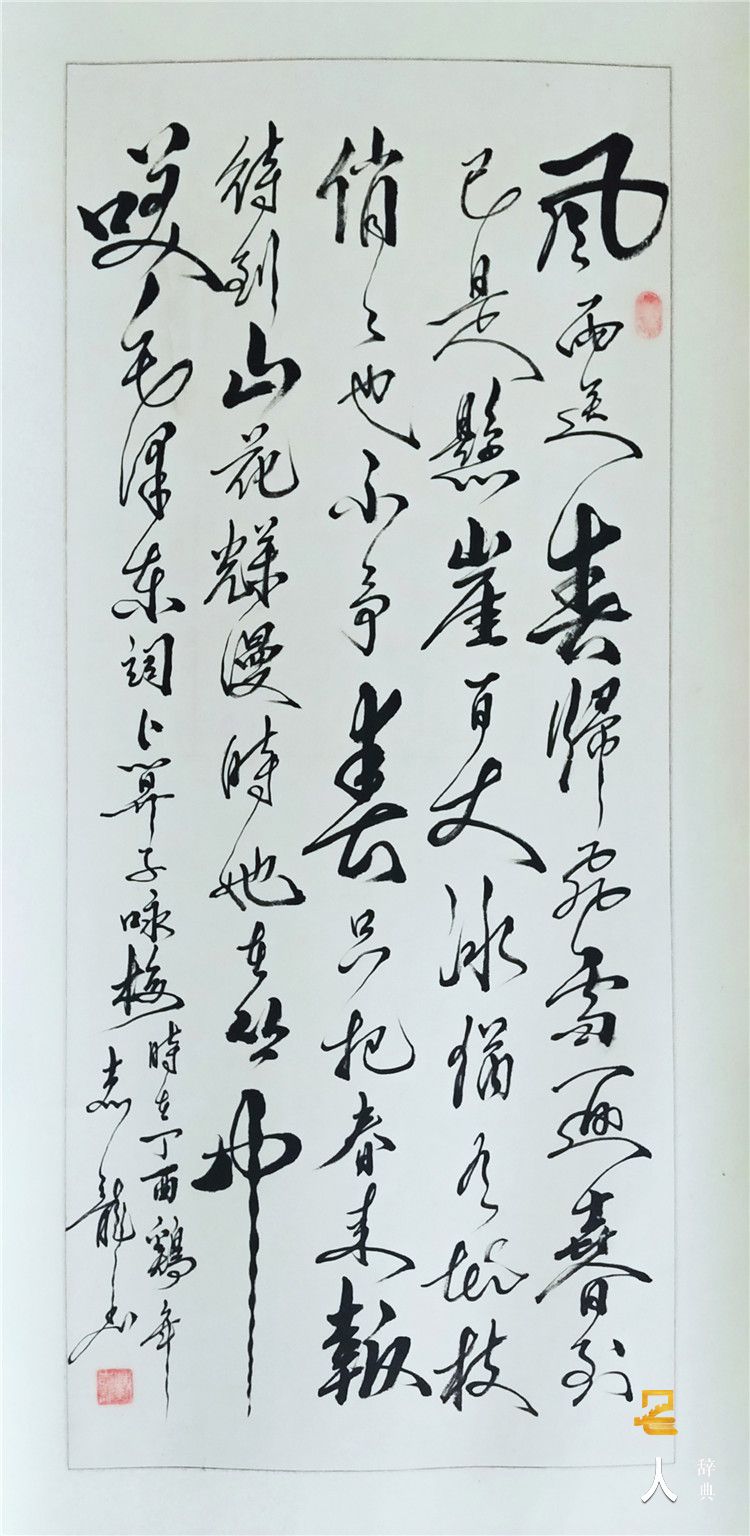 風雨送春歸飛雪迎春到
已是懸崖百丈冰猶有花枝
俏〻也不争春只把春来報
待到山花爛漫時她在丛中
咲毛澤東詞卜算子咏梅
時在丁酉鷄年
志龍书
名人
辞典